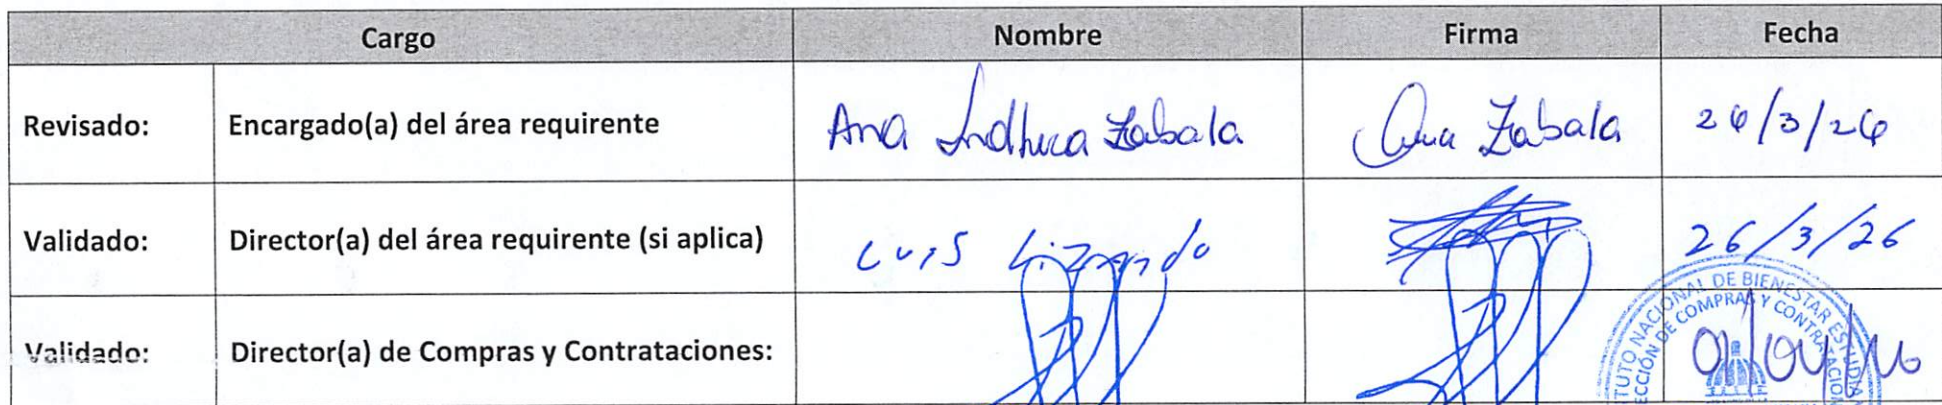 Cargo Nombre Firma Fecha
Revisado: Encargado(a) del área requirente Ana Indhira Zabala Ana Zabala 26/3/26
Validado: Director(a) del área requirente (si aplica) Luis Lizardo 26/3/26
Validado: Director(a) de Compras y Contrataciones: 01/04/26
NACIONAL DE BIENESTAR
DE COMPRAS Y